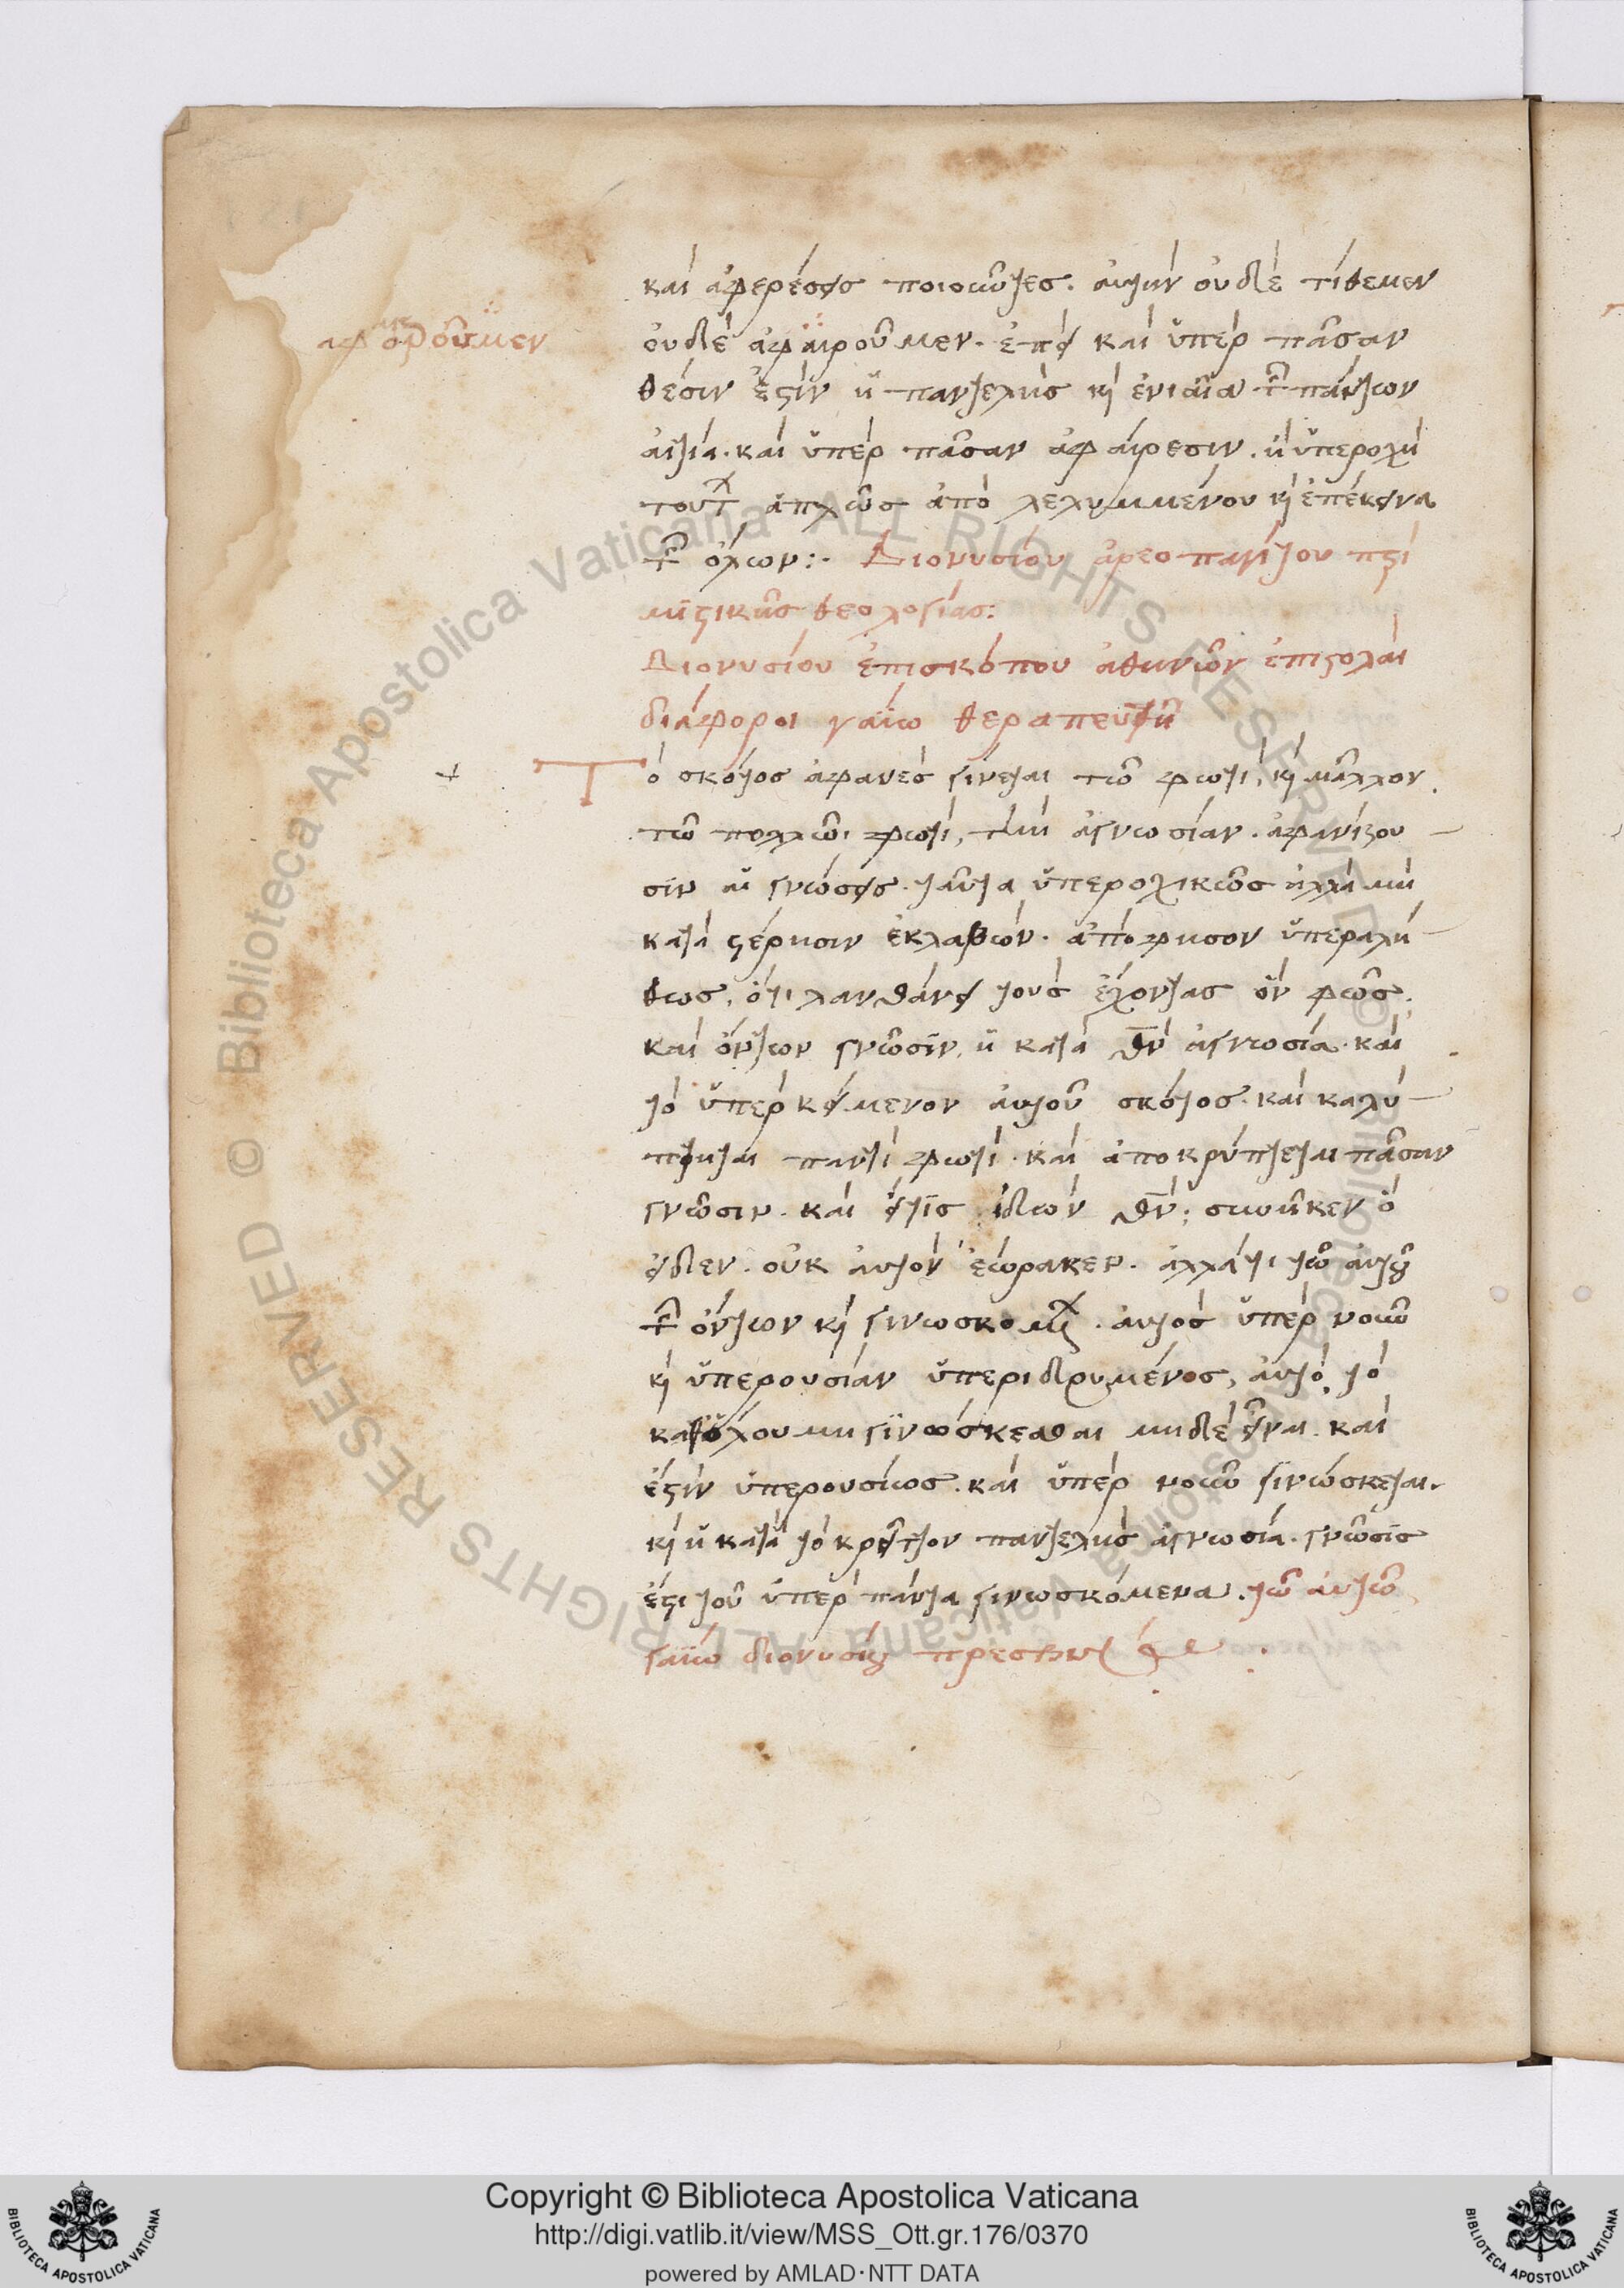 καὶ ἀφερέσεις ποιοῦντες. αὐτὴν οὐδὲ τίθεμεν
ἀφοροῦμεν
αιρ
οὐδὲ ἀφαιροῦμεν. ἐπεὶ καὶ ὑπὲρ πᾶσαν
θέσιν ἐστὶν ἡ παντελὴς κ(αὶ) ἑνιαῖα τ(ῶν) πάντων
αἰτία. καὶ ὑπὲρ πᾶσαν ἀφαίρεσιν. ἡ ὑπεροχὴ
τοῦ τ(ῶν) ἁπλῶς ἀπολελυμμένου κ(αὶ) ἐπέκεινα
τ(ῶν) ὅλων:. Διονυσίου ἀρεοπαγίτου π(ερ)ὶ
μϊστικῆς θεολογίας:
Διονυσίου ἐπισκόπου ἀθηνῶν ἐπιστολαὶ
διάφοροι γαΐω θεραπευτῆ
Τὸ σκότος ἀφανὲς γίνεται τῶ φωτὶ, κ(αὶ) μᾶλλον
τῶ πολλῶ φωτὶ, τὴν ἀγνωσίαν. ἀφανίζου
σιν αἱ γνώσεις. ταῦτα ὑπεροχικῶς ἀλλὰ μὴ
κατὰ στέρησιν ἐκλαβών. ἀπόφησον ὑπεραλη
θως, ὅτι λανθάνει τοὺς ἔχοντας ὂν φῶς,
καὶ ὄντων γνῶσϊν, ἡ κατὰ θν ἀγνωσία. καὶ
τὸ ὑπερκείμενον αὐτοῦ σκότος. καὶ καλύ
πτηται παντὶ φωτὶ. καὶ ἀποκρύπτεται πᾶσαν
γνῶσιν. καὶ εἴτϊς ἰδὼν θν, συνῆκεν ὃ
εἶδεν. οὐκ αὐτὸν ἑώρακεν. ἀλλά τι τῶν αὐτοῦ
τ(ῶν) ὄντων κ(αὶ) γινωσκομ(έν). αὐτὸς ὑπὲρ νοῦν
κ(αὶ) ὑπερουσίαν ὑπεριδρυμένος, αὐτὸ τὸ
καθόλου μὴ γϊνώσκεσθαι μηδὲ εἶναι. καὶ
ἔστιν ὑπερουσίως. καὶ ὑπὲρ νοῦν γϊνώσκεται.
κ(αὶ) ἡ κατὰ τὸ κρεῖττον παντελὴς ἀγνωσία. γνῶσϊς
ἐστι τοῦ ὑπὲρ πάντα γινωσκόμενα. τῶ αὐτῶ
γαΐω διονυσίου πρεσβυ
Copyright © Biblioteca Apostolica Vaticana
http://digi.vatlib.it/view/MSS_Ott.gr.176/0370
powered by AMLAD·NTT DATA
BIBLIOTECA APOSTOLICA VATICANA
BIBLIOTECA APOSTOLICA VATICANA
© Biblioteca Apostolica Vaticana ALL RIGHTS RESERVED © Biblioteca Apostolica Vaticana ALL RIGHTS RESERVED